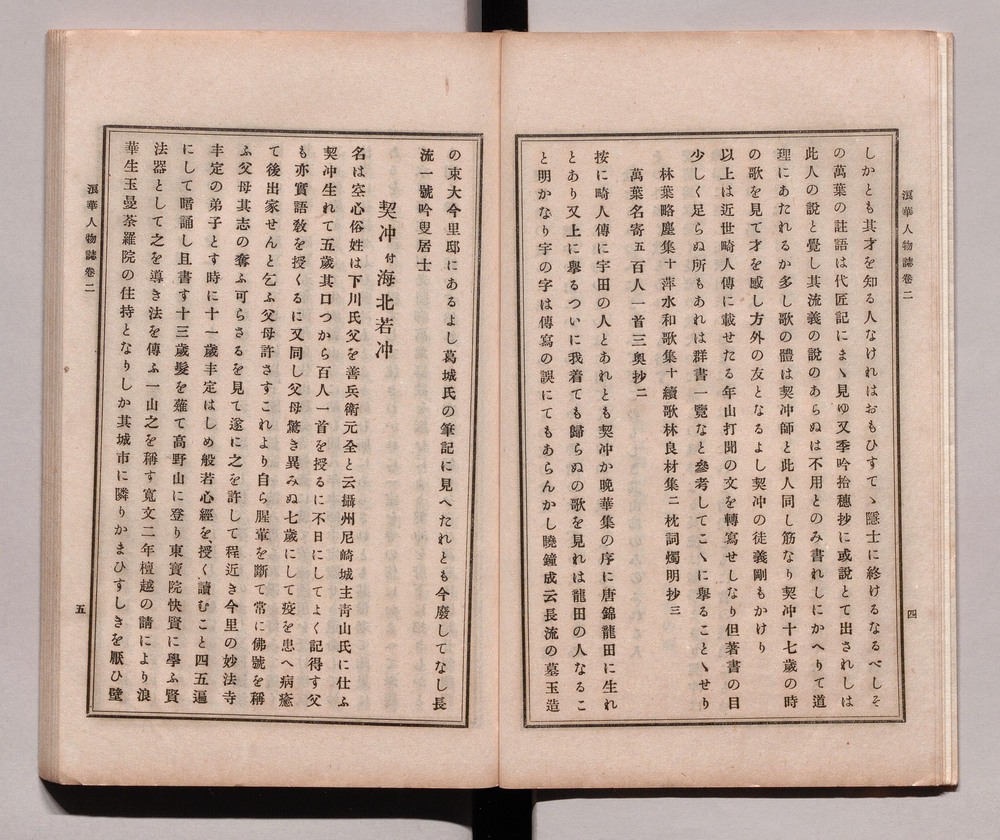 浪華人物誌卷二
四
しかとも其才を知る人なけれはおもひすてゝ隱士に終けるなるべしそ
の萬葉の註語は代匠記にまゝ見ゆ又季吟拾穗抄に或說とて出されしは
此人の說と覺し其流義の說のあらぬは不用とのみ書れしにかへりて道
理にあたれるか多し歌の體は契冲師と此人同し筋なり契冲十七歲の時
の歌を見て才を感し方外の友となるよし契冲の徒義剛もかけり
以上は近世畸人傳に載せたる年山打聞の文を轉寫せしなり但著書の目
少しく足らぬ所もあれは群書一覽なと參考してこゝに擧ることゝせり
林葉略塵集十 萍水和歌集十 續歌林良材集二 枕詞燭明抄三
萬葉名寄五 百人一首三奧抄二
按に畸人傳に宇田の人とあれとも契冲か晩華集の序に唐錦龍田に生れ
とあり又上に擧るついに我着ても歸らぬの歌を見れは龍田の人なるこ
と明かなり宇の字は傳寫の誤にてもあらんかし曉鐘成云長流の墓玉造
の東大今里邸にあるよし葛城氏の筆記に見へたれとも今廢してなし長
流一號吟叟居士
契冲 付海北若冲
名は空心俗姓は下川氏父を善兵衞元全と云攝州尼崎城主靑山氏に仕ふ
契冲生れて五歲其口つから百人一首を授るに不日にしてよく記得す父
も亦實語敎を授くるに又同し父母驚き異みぬ七歲にして疫を患へ病癒
て後出家せんと乞ふ父母許さすこれより自ら腥葷を斷て常に佛號を稱
ふ父母其志の奪ふ可らさるを見て遂に之を許して程近き今里の妙法寺
丰定の弟子とす時に十一歲丰定はしめ般若心經を授く讀むこと四五遍
にして喑誦し且書す十三歲髮を薙て高野山に登り東寶院快賢に學ふ賢
法器として之を導き法を傳ふ一山之を稱す寬文二年檀越の請により浪
華生玉曼荼羅院の住持となりしか其城市に隣りかまひすしきを厭ひ壁
浪華人物誌卷二
五